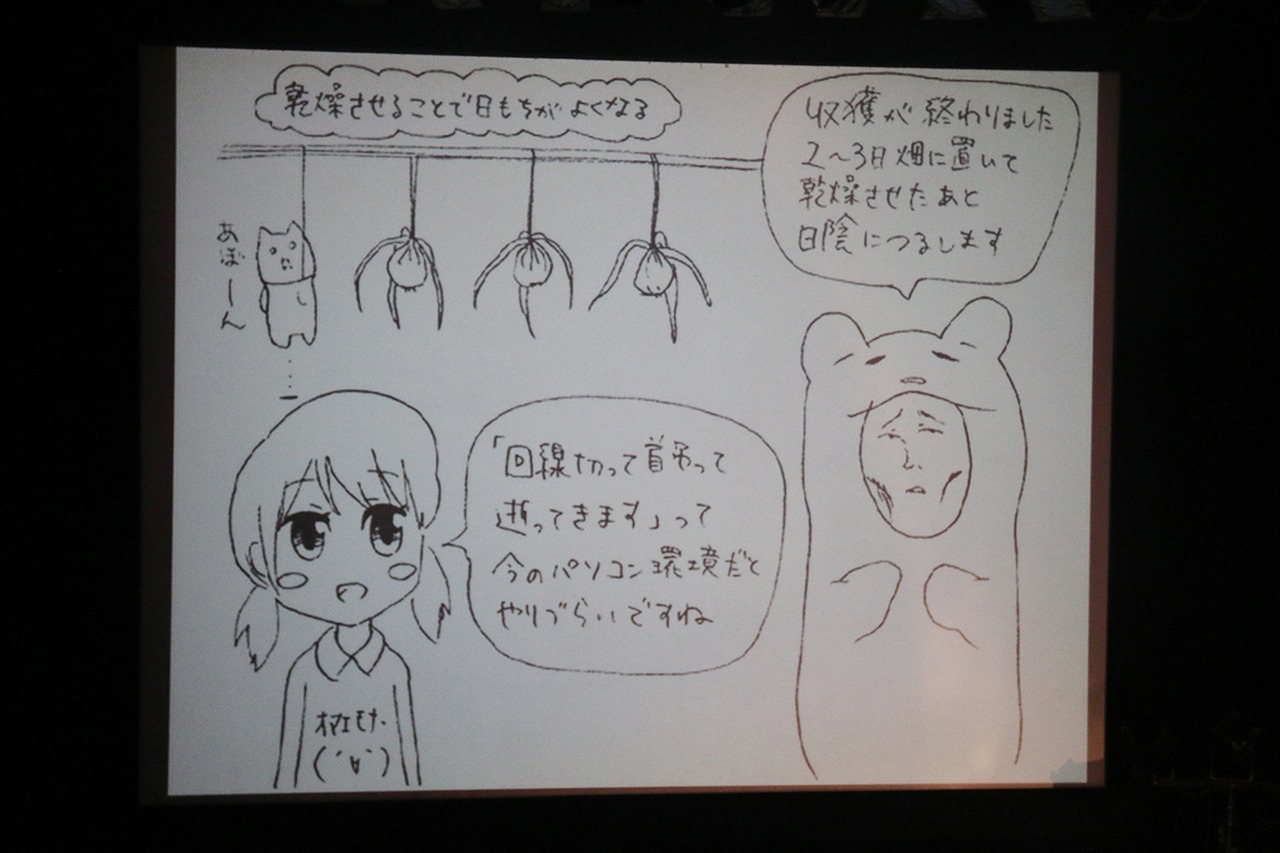 乾燥させることで日もちがよくなる
収獲が終わりました
2〜3日畑に置いて
乾燥させたあと
日陰につるします
あぼーん
「回線切って首吊って
逝ってきます」って
今のパソコン環境だと
やりづらいですね
オマエモナ-
(´∀`)